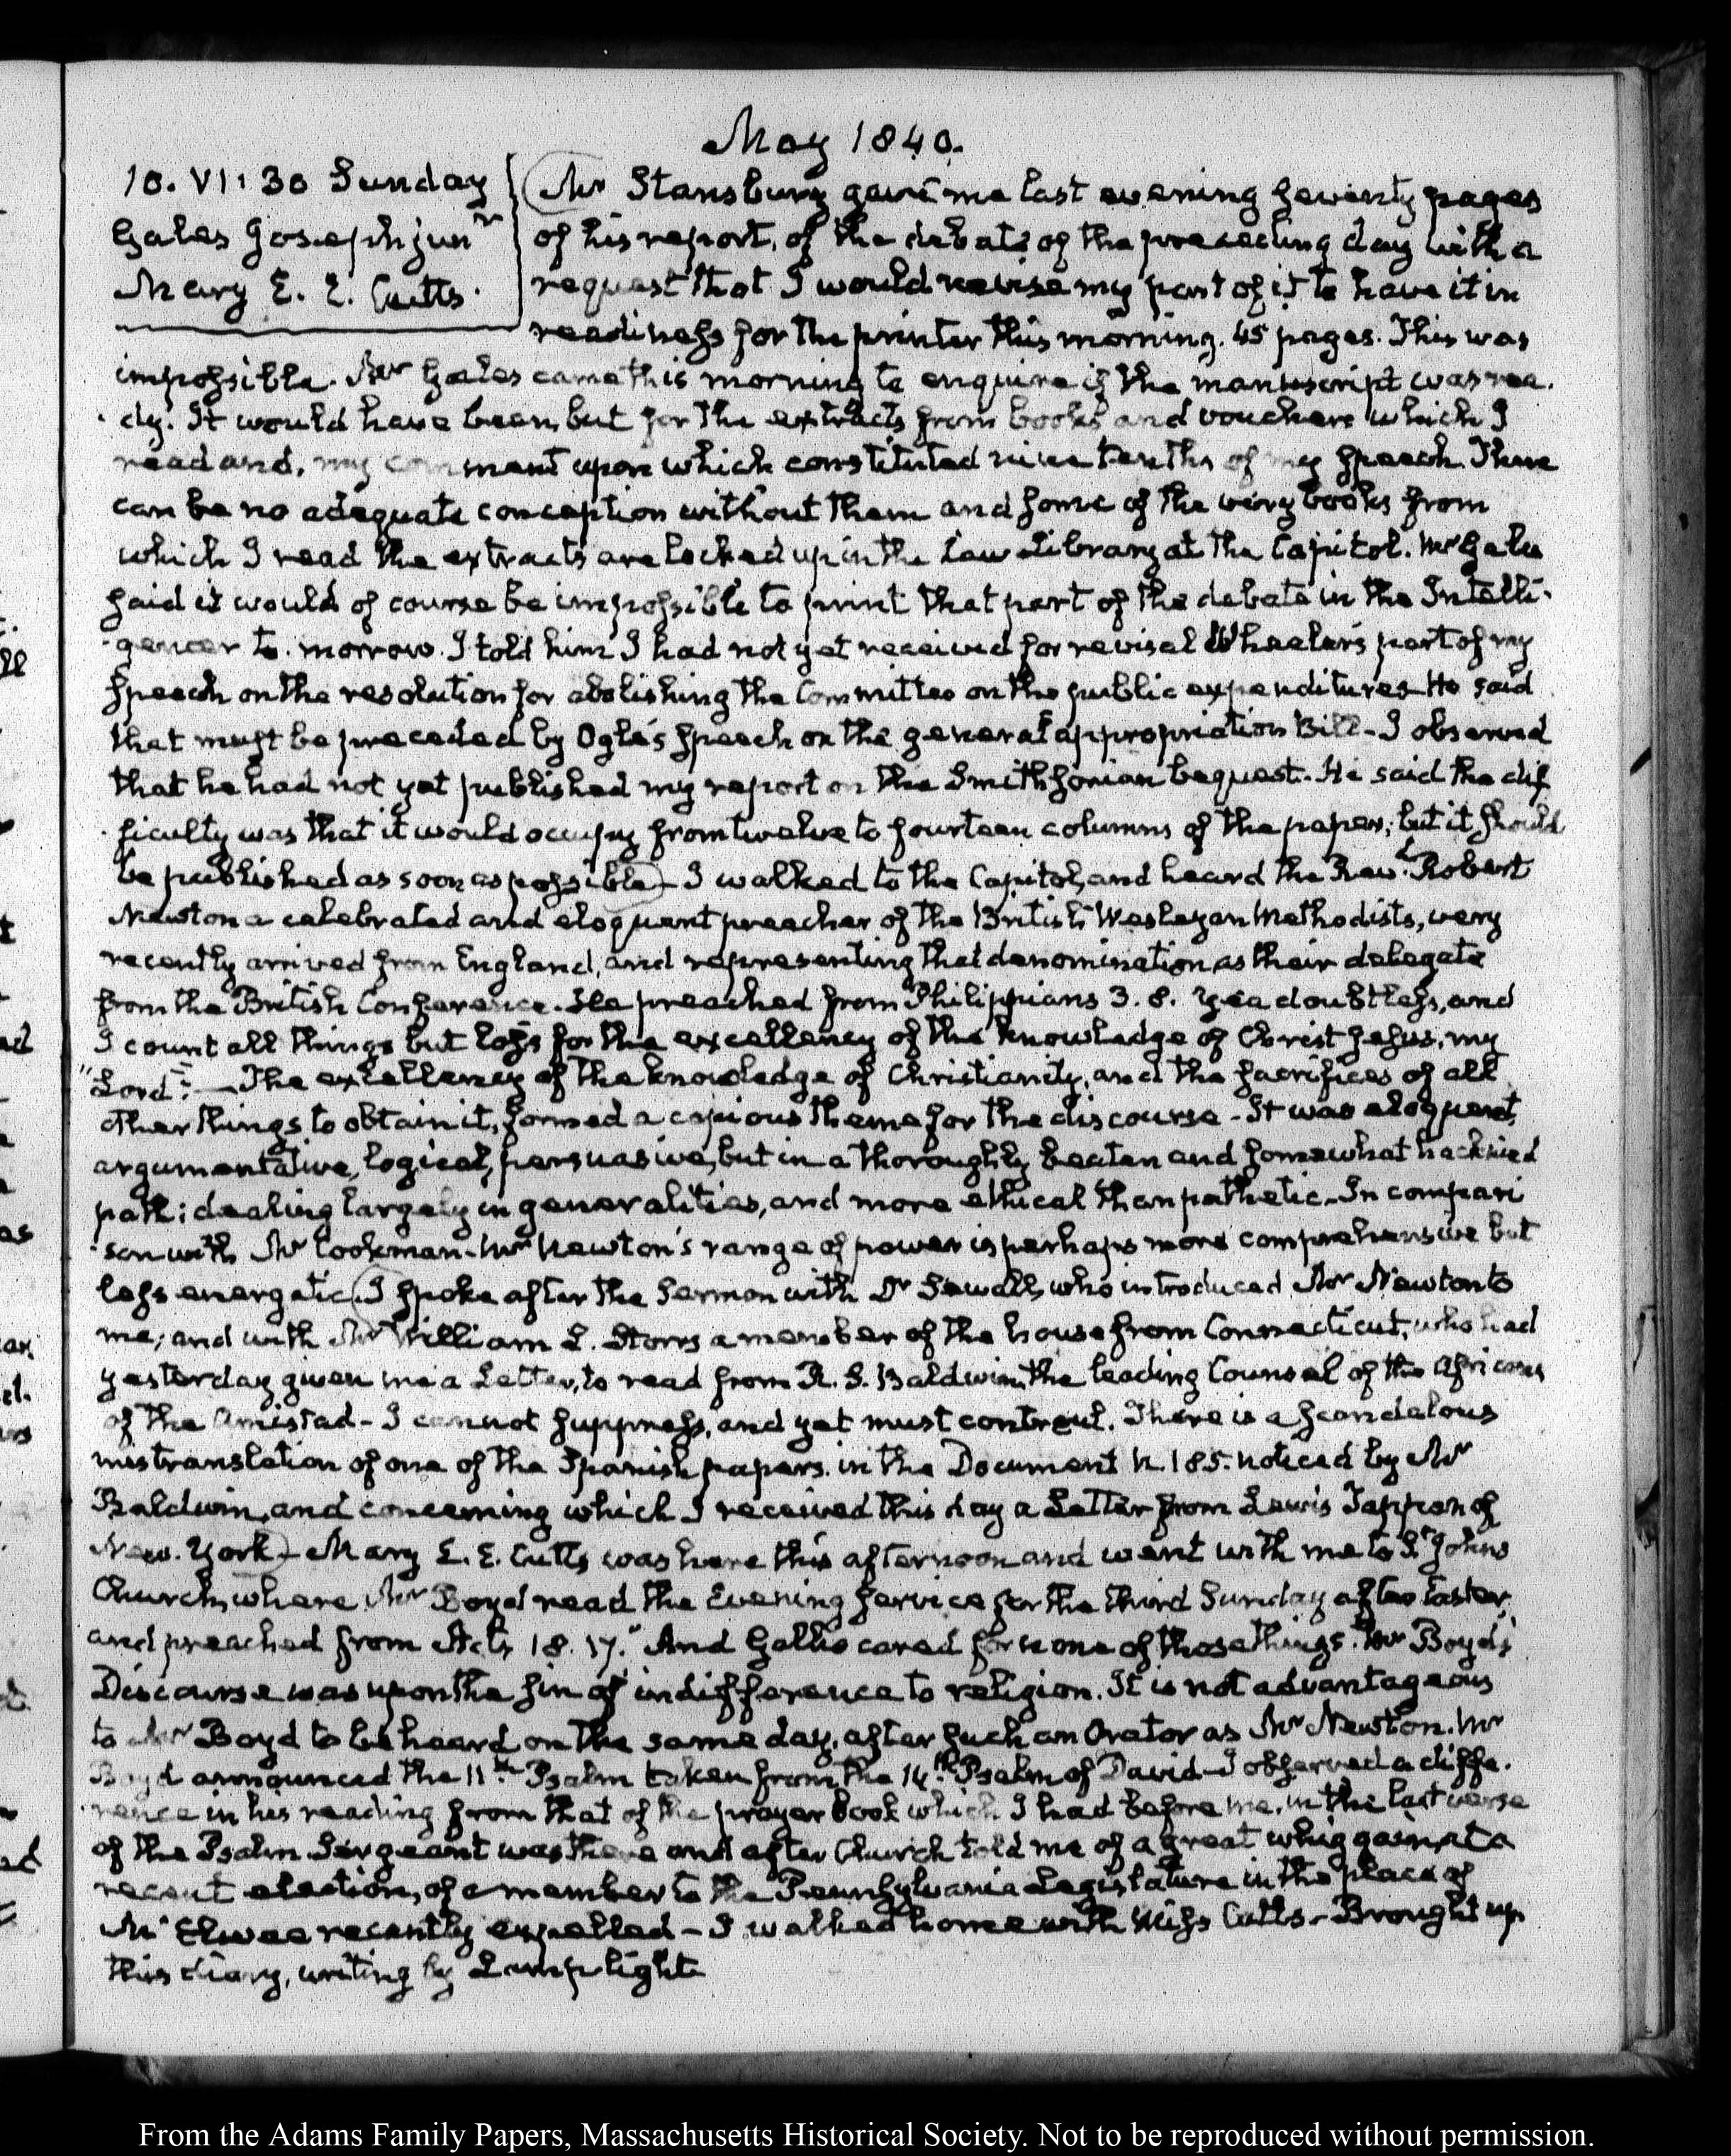 May 1840.
10. VI: 30 Sunday
Gales Joseph junr
Mary E. E. Cutts.
Mr Stansbury gave me last evening seventy pages
of his report, of the debate of the preceding day with a
request that I would revise my part of it to have it in
readiness for the printer this morning. 45 pages. This was
impossible. Mr Gales came this morning to enquire if the manuscript was rea-
dy. It would have been, but for the extracts from books and vouchers which I
read and, my comment upon which constituted nine tenths of my speech. There
can be no adequate conception without them and some of the very books from
which I read the extracts are locked up in the Law Library at the Capitol. Mr Gales
said it would of course be impossible to print that part of the debate in the Intelli-
gencer to-morrow. I told him I had not yet received for revisal Wheeler's part of my
speech on the resolution for abolishing the Committee on the public expenditures. He said
that must be preceded by Ogle's speech on the general appropriation Bill - I observed
that he had not yet published my report on the Smithsonian bequest. He said the dif
ficulty was that it would occupy from twelve to fourteen columns of the paper; but it should
be published as soon as possible - I walked to the Capitol, and heard the Revd. Robert
Newton a celebrated and eloquent preacher of the British Wesleyan Methodists, very
recently arrived from England, and representing that denomination as their delegate
from the British Conference. He preached from Philippians 3. 8. Yea doubtless, and
I count all things but loss for the excellency of the knowledge of Christ Jesus, my
"Lord": — The excellency of the knowledge of Christianity, and the sacrifices of all
other things to obtain it, formed a copious theme for the discourse - It was eloquent,
argumentative, logical, persuasive, but in a thoroughly beaten and somewhat hacknied
path; dealing largely in generalities, and more ethical than pathetic - In compari
son with Mr Cookman - Mr Newton's range of power is perhaps more comprehensive but
less energetic. I spoke after the Sermon with Dr Sewall, who introduced Mr Newton to
me; and with Mr William L. Storrs a member of the house from Connecticut, who had
yesterday given me a Letter, to read from R. S. Baldwin, the leading Counsel of the Africans
of the Amistad - I cannot suppress, and yet must controul. There is a scandalous
mistranslation of one of the Spanish papers. in the Document N. 185. noticed by Mr
Baldwin, and concerning which I received this day a Letter from Lewis Tappan of
New-York - Mary E. E. Cutts was here this afternoon and went with me to St Johns
Church, where Mr Boyd read the Evening service for the third Sunday after Easter,
and preached from Acts 18. 17. "And Gallio cared for none of those things. Mr Boyd's
Discourse was upon the sin of indifference to religion. It is not advantageous
to Mr Boyd to be heard on the same day, after such an Orator as Mr Newton. Mr
Boyd announced the 11th Psalm taken from the 14th Psalm of David - I observed a diffe-
rence in his reading from that of the prayer book which I had before me, in the last verse
of the Psalm. Sergeant was there and after Church told me of a great whig gain, at a
recent election, of a member to the Pennsylvania Legislature in the place of
Mc Elwee recently expelled - I walked home with Miss Cutts - Brought up
this diary, writing by Lamp light
From the Adams Family Papers, Massachusetts Historical Society. Not to be reproduced without permission.